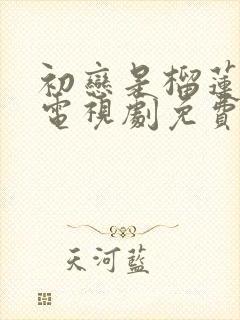 初戀是榴蓮
電視劇免費
天河藍